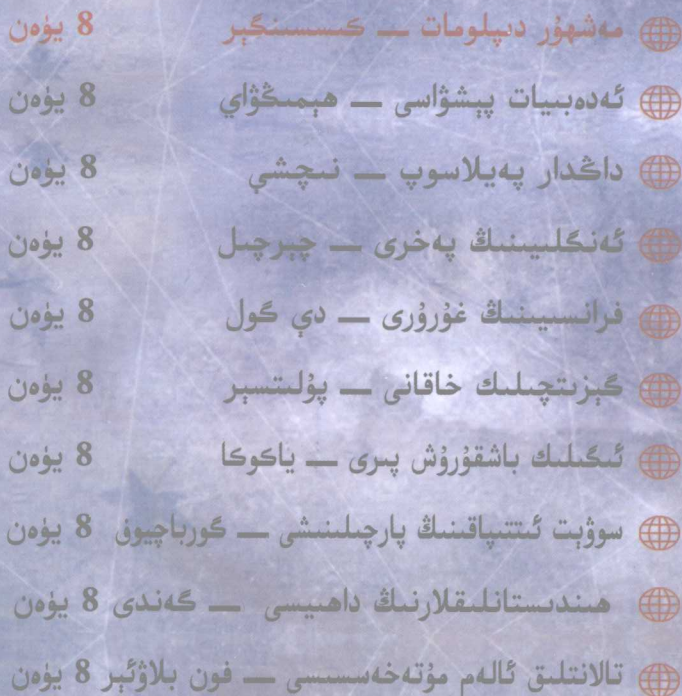 مەشھۇر دىپلومات — كىسسىنگېر 8 يۈەن
ئەدەبىيات پېشۋاسى — ھېمىڭۋاي 8 يۈەن
داڭدار پەيلاسوپ — نىچشې 8 يۈەن
ئەنگلىيىنىڭ پەخرى — چېرچىل 8 يۈەن
فرانسىيىنىڭ غۇرۇرى — دې گول 8 يۈەن
گېزىتچىلىك خاقانى — پۇلىتسېر 8 يۈەن
ئىگىلىك باشقۇرۇش پىرى — ياكوكا 8 يۈەن
سوۋېت ئىتتىپاقىنىڭ پارچىلىنىشى — گورباچيوف 8 يۈەن
ھىندىستانلىقلارنىڭ داھىيسى — گەندى 8 يۈەن
تالانتلىق ئالەم مۇتەخەسسىسى — فون بلاۋئېر 8 يۈەن